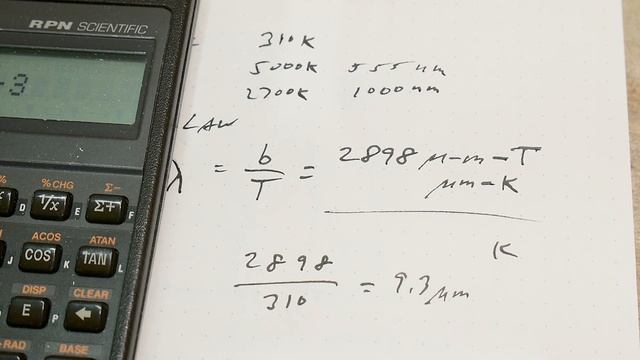 RPN SCIENTIFIC
-3
% CHG Σ-
1/x E Σ+ F
ACOS ATAN
J COS K TAN L
DISP CLEAR
E P ←
-RAD BASE
310K
5000K 555 nm
2700K 1000nm
LAW
λ = b/T = 2898 μ-m-T
μm-K
K
2898/310 = 9.3μm